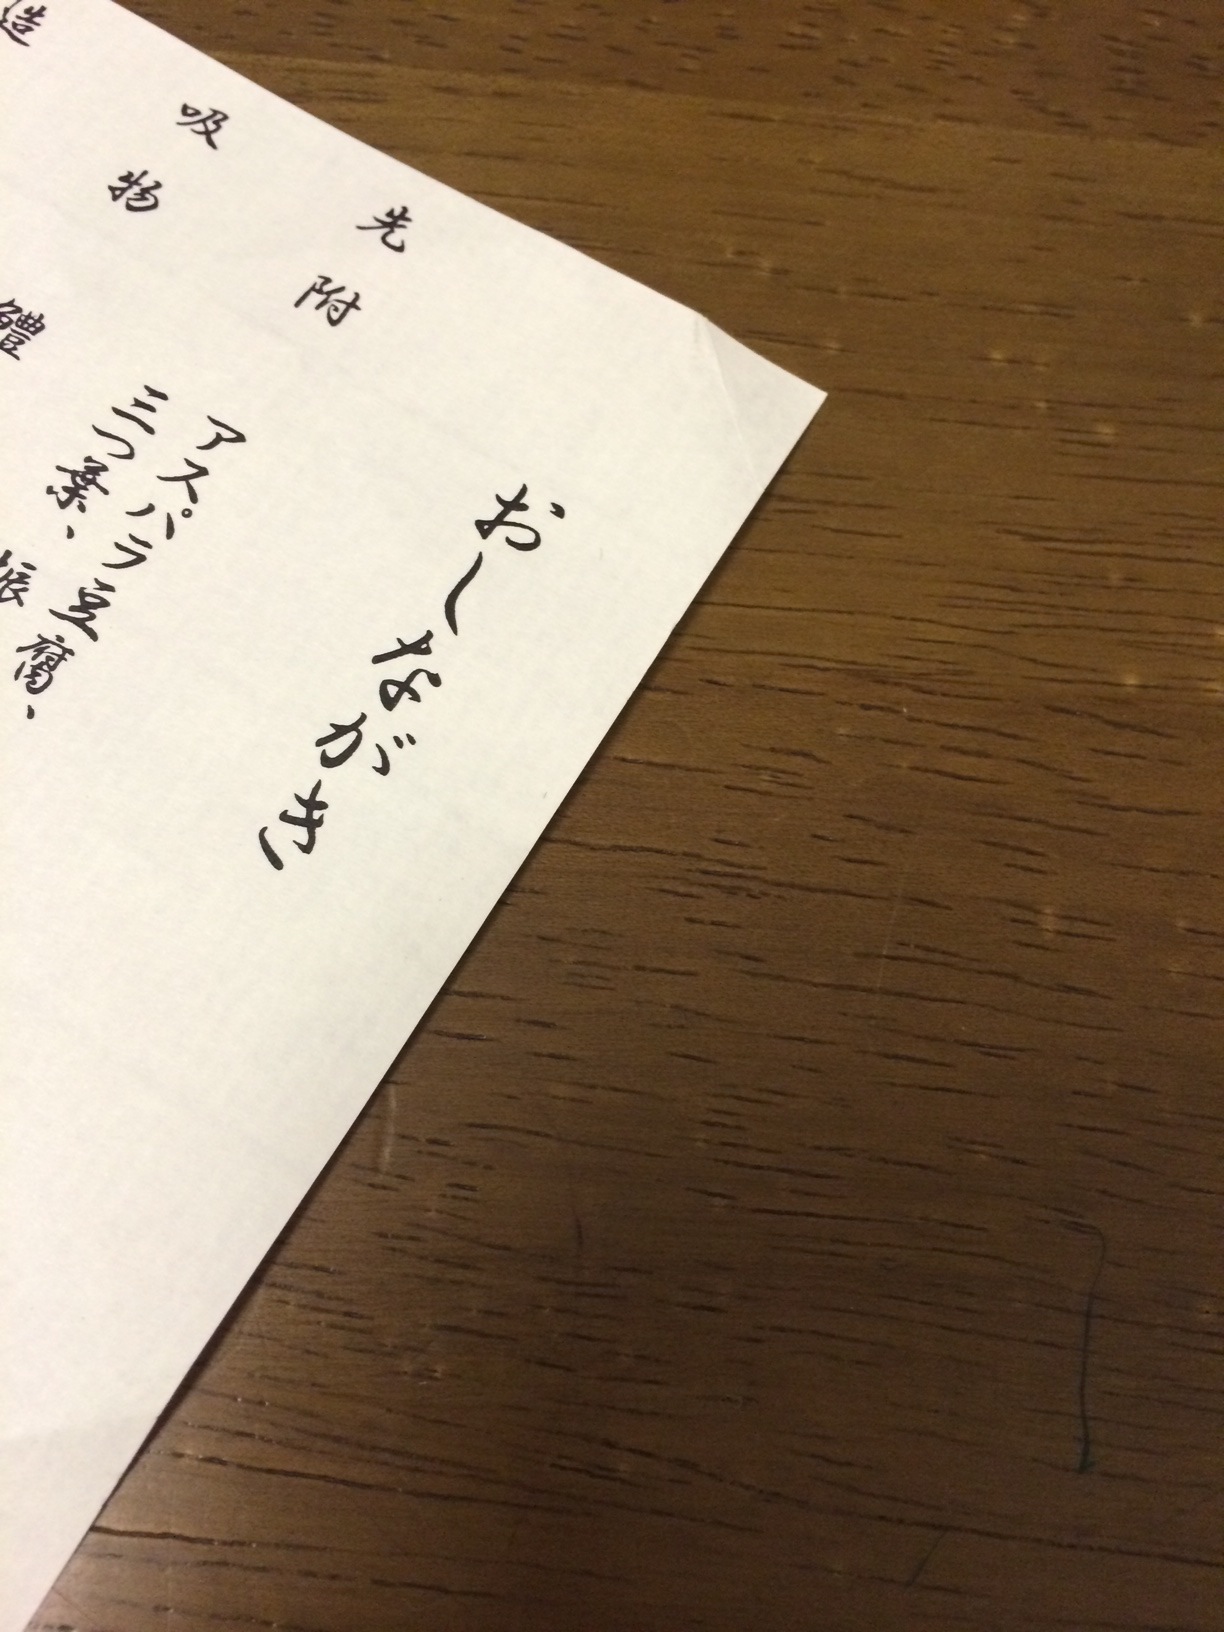 おしながき
先附 アスパラ豆腐、
三つ葉、
吸物
造